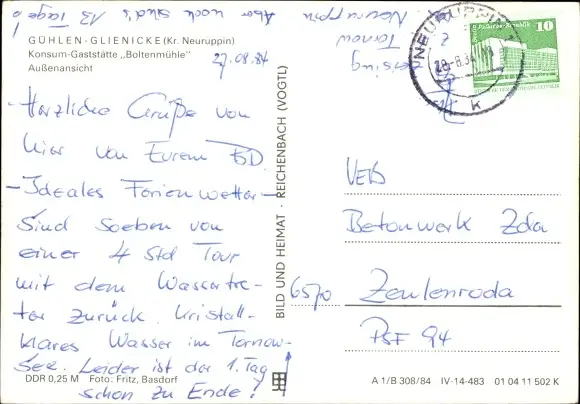 ! Aber noch sind's 13 Tage
GÜHLEN-GLIENICKE (Kr. Neuruppin)
Konsum-Gaststätte „Boltenmühle"
Außenansicht
27.08.84
- Herzliche Grüße von
hier von Eurem
- Ideales Ferienwetter -
Sind soeben von
einer 4 Std Tour
mit dem Wassertre-
ter zurück. Kristall-
klares Wasser im Tornow-
See. Leider ist der 1. Tag
schon zu Ende!
DDR 0,25 M Foto: Fritz, Basdorf
BILD UND HEIMAT REICHENBACH (VOGTL)
Neuruppin
Tornow
NEURUPPIN 1
28-8.84
k
10
VEB
Betonwerk Zda
6570 Zeulenroda
PSF 94
A 1/B 308/84 IV-14-483 01 04 11 502 K